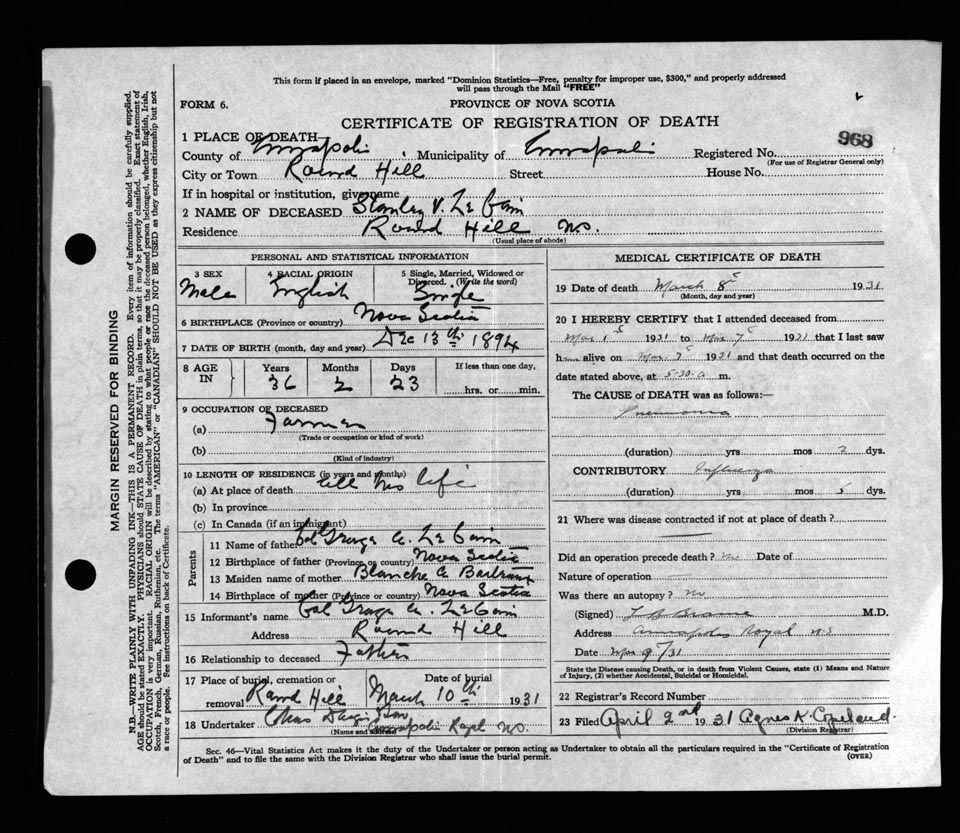 This form if placed in an envelope, marked "Dominion Statistics—Free, penalty for improper use, $300," and properly addressed
will pass through the Mail "FREE"
FORM 6.
PROVINCE OF NOVA SCOTIA
CERTIFICATE OF REGISTRATION OF DEATH
968
1 PLACE OF DEATH
County of Annapolis, Municipality of Annapolis Registered No.
(For use of Registrar General only)
City or Town Round Hill Street House No.
If in hospital or institution, give name
2 NAME OF DECEASED Stanley V. Le Cain
Residence Round Hill N.S.
(Usual place of abode)
PERSONAL AND STATISTICAL INFORMATION
3 SEX 4 RACIAL ORIGIN 5 Single, Married, Widowed or
Divorced. (Write the word)
Male English Single
6 BIRTHPLACE (Province or country) Nova Scotia
7 DATE OF BIRTH (month, day and year) Dec 13th 1894
8 AGE IN Years Months Days If less than one day,
36 2 23 hrs. or min.
9 OCCUPATION OF DECEASED
(a) Farmer
(Trade or occupation or kind of work)
(b)
(Kind of industry)
10 LENGTH OF RESIDENCE (in years and months)
(a) At place of death all his life
(b) In province
(c) In Canada (if an immigrant)
Parents
11 Name of father Col George A. Le Cain
12 Birthplace of father (Province or country) Nova Scotia
13 Maiden name of mother Blanche A Bartraux
14 Birthplace of mother (Province or country) Nova Scotia
15 Informant's name Col George A. Le Cain
Address Round Hill
16 Relationship to deceased Father
17 Place of burial, cremation or Date of burial
removal Round Hill March 10th 1931
18 Undertaker Chas
(Name and address) Annapolis Royal N.S.
MEDICAL CERTIFICATE OF DEATH
19 Date of death March 8 1931
(Month, day and year)
20 I HEREBY CERTIFY that I attended deceased from
Mar 1 1931 to Mar 7 1931 that I last saw
h alive on Mar 7 1931 and that death occurred on
date stated above, at 5.30 a m.
The CAUSE of DEATH was as follows:—
Pneumonia
(duration) yrs mos dys.
CONTRIBUTORY Influenza
(duration) yrs mos 5 dys.
21 Where was disease contracted if not at place of death?
Did an operation precede death? no Date of
Nature of operation
Was there an autopsy? no
(Signed) M.D.
Address Annapolis Royal N.S.
Date Mar 9/31
State the Disease causing Death, or in death from Violent Causes, state (1) Means and Nature
of Injury, (2) whether Accidental, Suicidal or Homicidal.
22 Registrar's Record Number
23 Filed April 2nd 1931 Agnes K. Copeland
(Division Registrar)
Sec. 46—Vital Statistics Act makes it the duty of the Undertaker or person acting as Undertaker to obtain all the particulars required in the "Certificate of Registration
of Death" and to file the same with the Division Registrar who shall issue the burial permit.
(OVER)
MARGIN RESERVED FOR BINDING
N.B.—WRITE PLAINLY WITH UNFADING INK—THIS IS A PERMANENT RECORD. Every item of information should be carefully supplied.
AGE should be stated EXACTLY. PHYSICIANS should STATE CAUSE OF DEATH in plain terms, so that it may be properly classified. Exact statement of
OCCUPATION is very important. RACIAL ORIGIN will be described by stating to what people or race the deceased person belonged, whether English, Irish,
Scotch, French, German, Russian, Ruthenian, etc. The terms "AMERICAN" or "CANADIAN" SHOULD NOT BE USED as they express citizenship but not
a race or people. See instructions on back of Certificate.